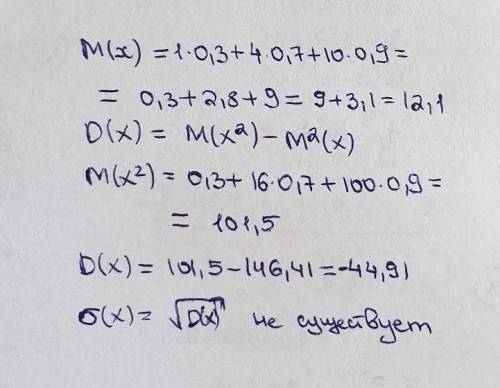 M(x) = 1·0,3+4·0,7+10·0,9=
= 0,3+2,8+9 = 9+3,1 = 12,1
D(x) = M(x²)-M²(x)
M(x²) = 0,3+16·0,7+100·0,9=
= 101,5
D(x) = 101,5-146,41=-44,91
σ(x) = √D(x) не существует